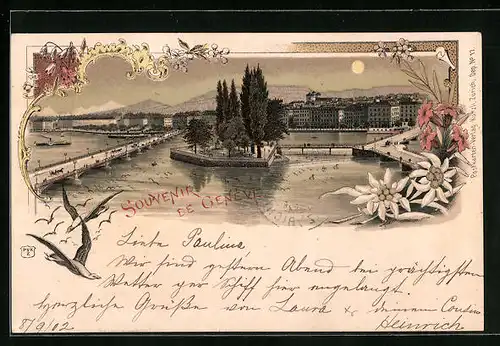 SOUVENIR
DE GENÈVE
Liebe Paulina
Wir sind gestern Abend bei prächtigstem
Wetter per Schiff hier angelangt.
Herzliche Grüße von Laura & deinem Cousin
8/9/02 Heinrich